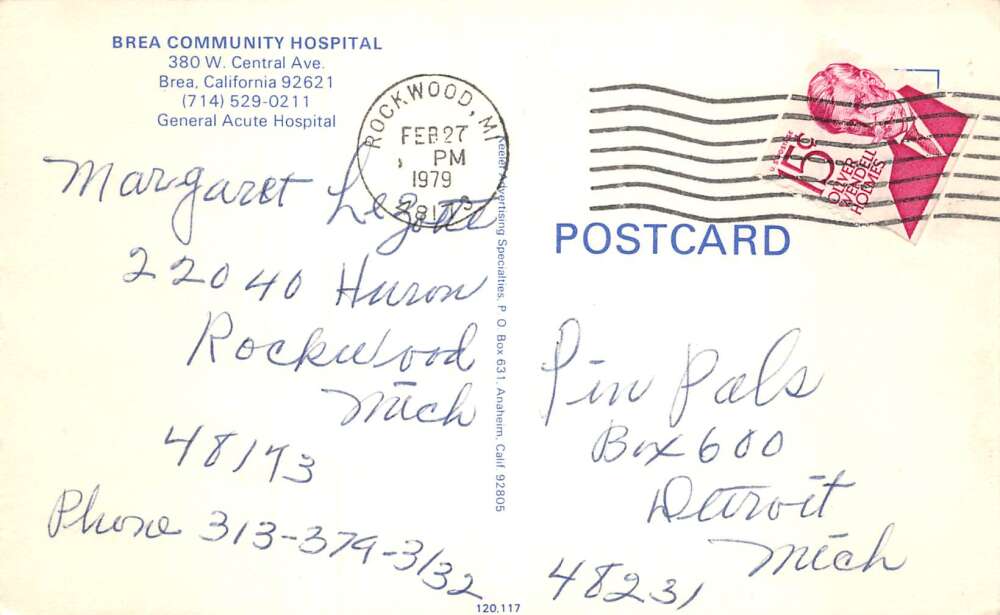 BREA COMMUNITY HOSPITAL
380 W. Central Ave.
Brea, California 92621
(714) 529-0211
General Acute Hospital
ROCKWOOD, MI
FEB 27
PM
1979
15c
OLIVER
WENDELL
HOLMES
POSTCARD
Margaret Lezotte
22040 Huron
Rockwood
Mich
48173
Phone 313-379-3132
Keeler Advertising Specialties, P. O. Box 631, Anaheim, Calif. 92805
120,117
Pin Pals
Box 600
Detroit
Mich
48231